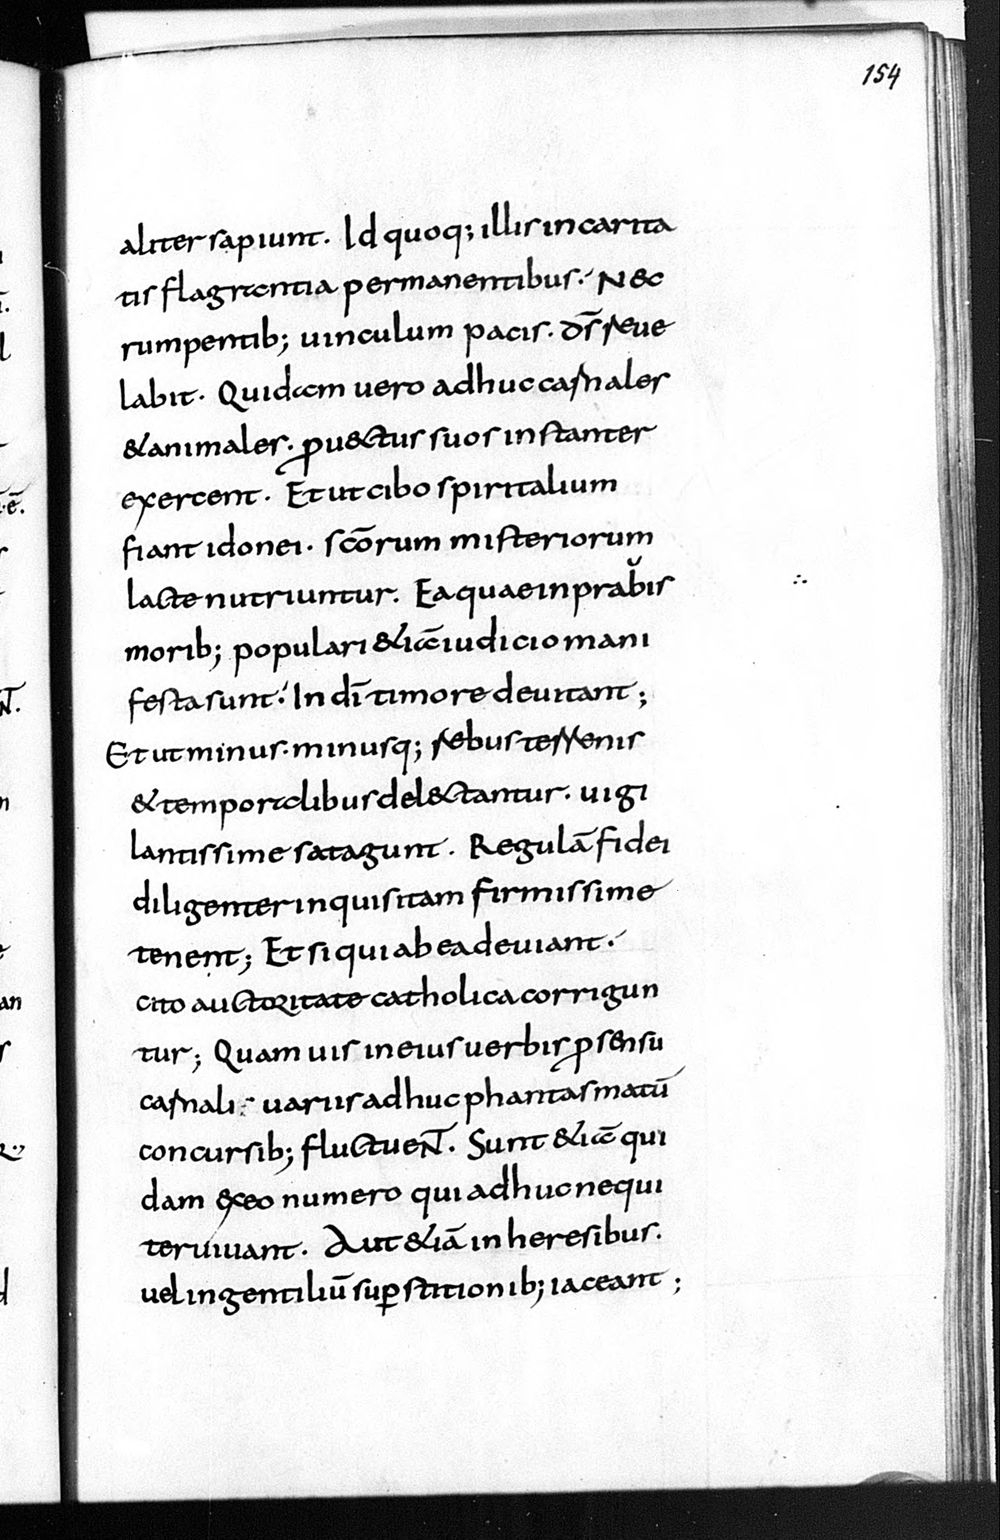 154
aliter sapiunt. Id quoq; illis in carita
tis flagrantia permanentibus. Nec
rumpentib; uinculum pacis. ds̄ reue
labit. Quidam uero adhuc carnales
& animales. ꝓuectus suos instanter
exercent. Et ut cibo spiritalium
fiant idonei. scōrum misteriorum
lacte nutriuntur. Ea quae in prauis
morib; populari &iā iudicio mani
festa sunt. In dī timore deuitant;
Et ut minus. minusq; rebus terrenis
& temporalibus del&ctantur. uigi
lantissime satagunt. Regulā fidei
diligenter inquisitam firmissime
tenent; Et si qui ab ea deuiant.
cito auctoritate catholica corrigun
tur; Quamuis in eius uerbis ꝓ sensu
carnali uariis adhuc phantasmatū
concursib; fluctuent̄. Sunt &iā qui
dam ex eo numero qui adhuc nequi
ter uiuant. Aut &iā in heresibus.
uel in gentiliū suꝑstitionib; iaceant;